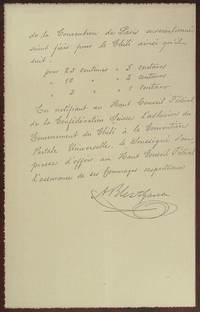 de la Convention de Paris susmentionnée
soient fixés pour le Chili ainsi qu'il
suit:
pour 25 centimes = 5 centavos
" 10 " = 2 centavos
" 5 " = 1 centavo
En notifiant au Haut Conseil Fédéral
de la Confédération Suisse l'adhésion du
Gouvernement du Chili à la Convention
Postale Universelle, le Soussigné s'em-
presse d'offrir au Haut Conseil Fédéral
l'assurance de ses hommages respectueux.
A. Blest Gana